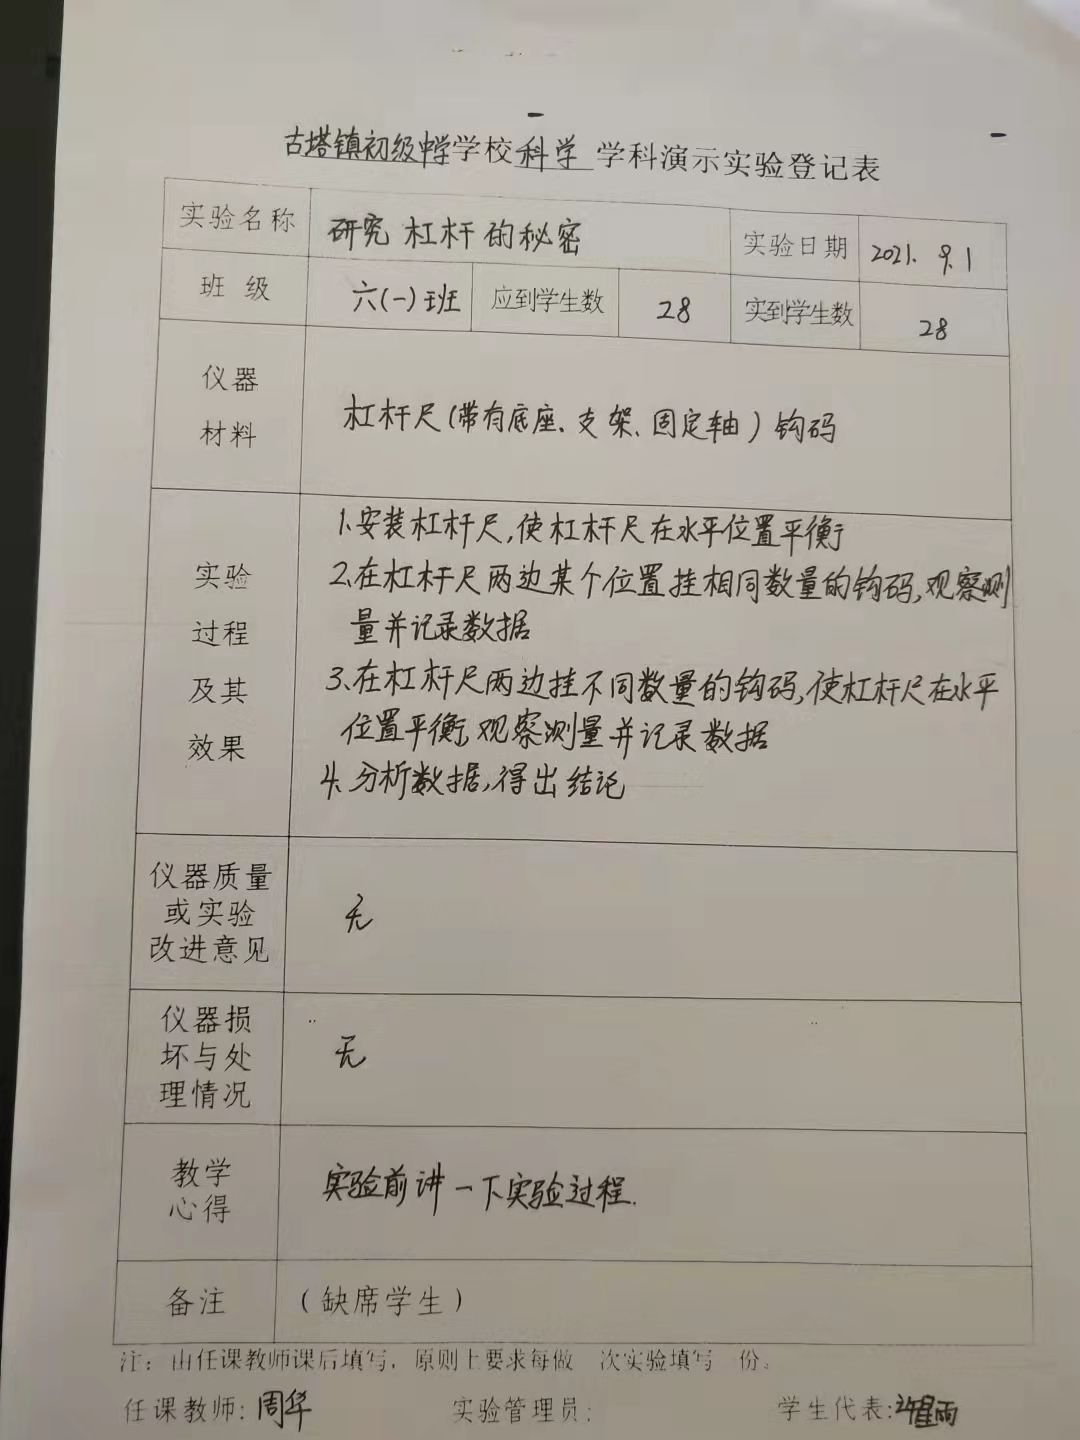 古塔镇初级中学学校科学学科演示实验登记表
实验名称 研究杠杆的秘密 实验日期 2021.9.1
班级 六(一)班 应到学生数 28 实到学生数 28
仪器
材料
杠杆尺(带有底座、支架、固定轴)钩码
实验
过程
及其
效果
1、安装杠杆尺,使杠杆尺在水平位置平衡
2、在杠杆尺两边某个位置挂相同数量的钩码,观察测
量并记录数据
3、在杠杆尺两边挂不同数量的钩码,使杠杆尺在水平
位置平衡,观察测量并记录数据
4、分析数据,得出结论
仪器质量
或实验
改进意见
无
仪器损
坏与处
理情况
无
教学
心得
实验前讲一下实验过程.
备注 (缺席学生)
注:由任课教师课后填写,原则上要求每做 次实验填写 份。
任课教师:周华 实验管理员: 学生代表:许星雨